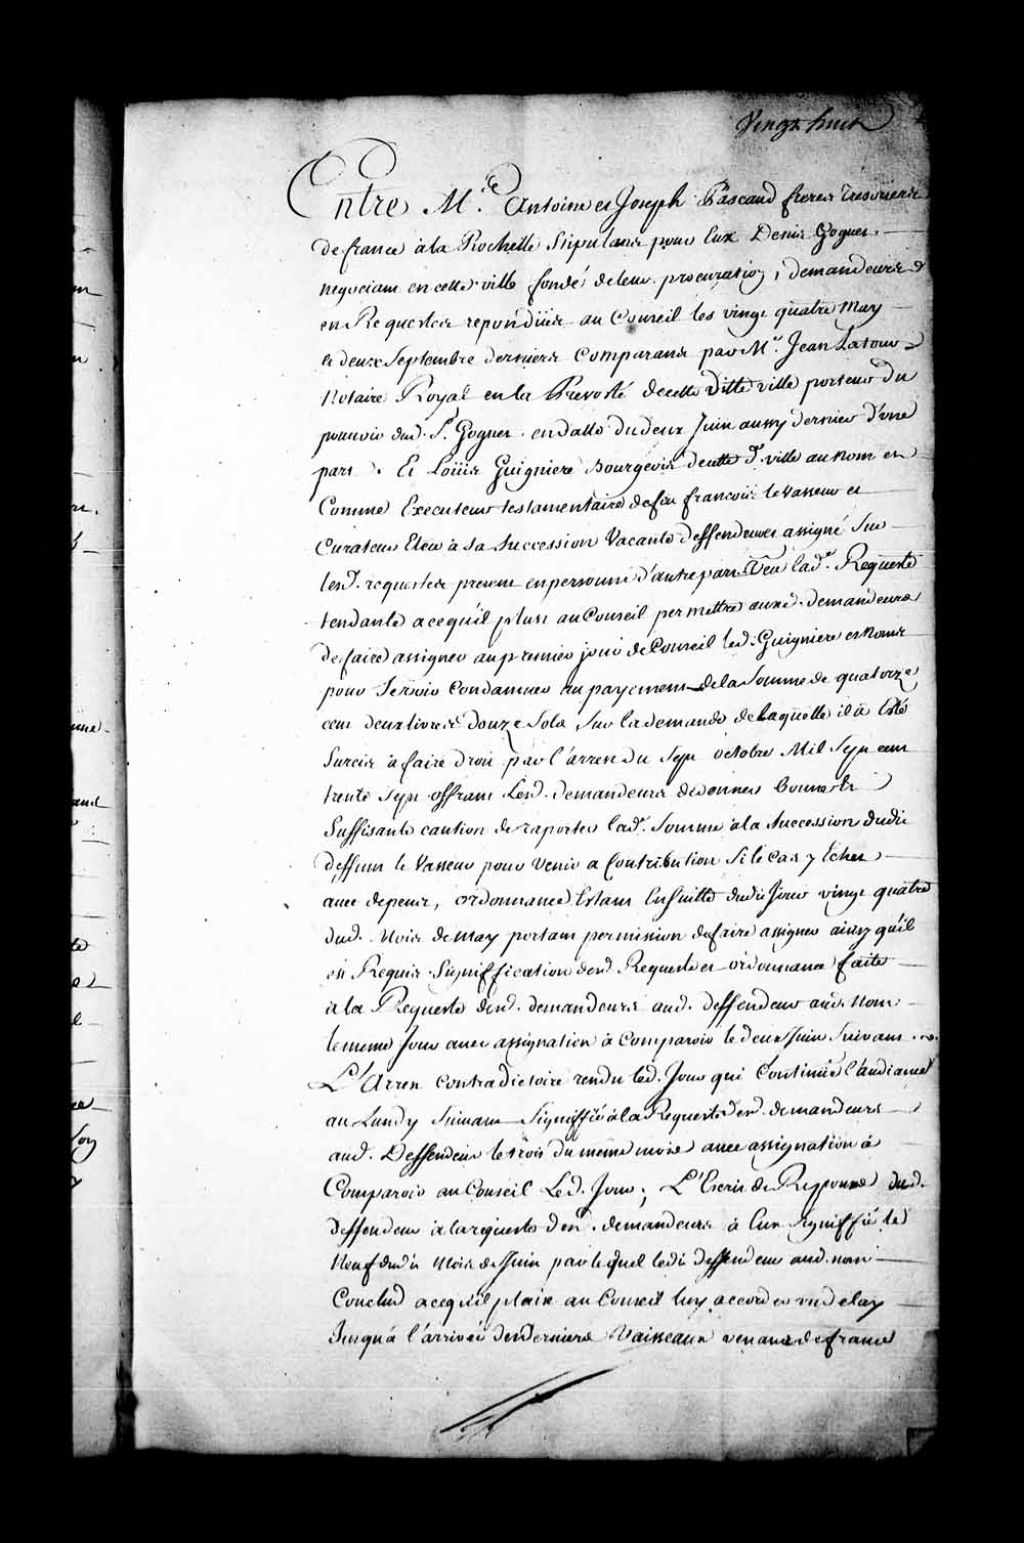 Vingt huit
Entre M.rs Antoine et Joseph Pascaud freres Tresoriers
de france à la Rochelle Stipulant pour Eux Denis Goguet
negociant en cette ville fondé de leur procuration, demandeurs
en Requestes repondües au Conseil les vingt quatre May
et deux Septembre derniers Comparant par M.e Jean Latour
Notaire Royal en la Prevosté de cette ditte ville porteur du
pouvoir dud. S.r Goguet en datte du deux Juin aussy dernier d'une
part. Et Loüis Guigniere Bourgeois de cette d.e ville au nom et
Comme Executeur testamentaire de feu francois le Vasseur et
Curateur Eleu à sa Succession Vacante deffendeur assigné Sur
lesd. requestes present en personne d'autre part Veu lad.e Requeste
tendante a cequ'il plust au Conseil permettre auxd. demandeurs
de faire assigner au premier jour de Conseil led. Guigniere es Noms
pour Se voir Condamner au payement de la Somme de quatorze
cent deux livres douze Sols Sur la demande de Laquelle il a Esté
Surcis à faire droit par l'arrest du Sept octobre Mil Sept cent
trente Sept offrant Lesd. demandeurs de donner bonne et
Suffisante caution de raporter lad.e Somme à la Succession dudit
deffunt le Vasseur pour Venir a Contribution Si le Cas y Echet
avec depens, ordonnance Estant Ensuitte dudit Jour vingt quatre
dud. Mois de May portant permission de faire assigner ainsy qu'il
est Requis Signiffication desd. Requeste et ordonnance faite
a la Requeste desd. demandeurs aud. deffendeur aud. Nom
le meme Jour avec assignation à Comparoir le deux Juin Suivant
L'Arrest Contradictoire rendu led. Jour qui Continüe l'audiance
au Lundy Suivant Signiffié à la Requeste desd. demandeurs
aud. Deffendeur le trois du meme mois avec assignation à
Comparoir au Conseil Led. Jour; L'Ecrit de Reponse dud.
deffendeur a la requeste desd. demandeurs à Eux Signiffié le
Neuf dudit Mois de Juin par lequel ledit deffendeur aud. nom
Conclud a cequ'il plaise au Conseil luy accorder un delay
Jusqu'à l'arrivée des derniers Vaisseaux venant de france